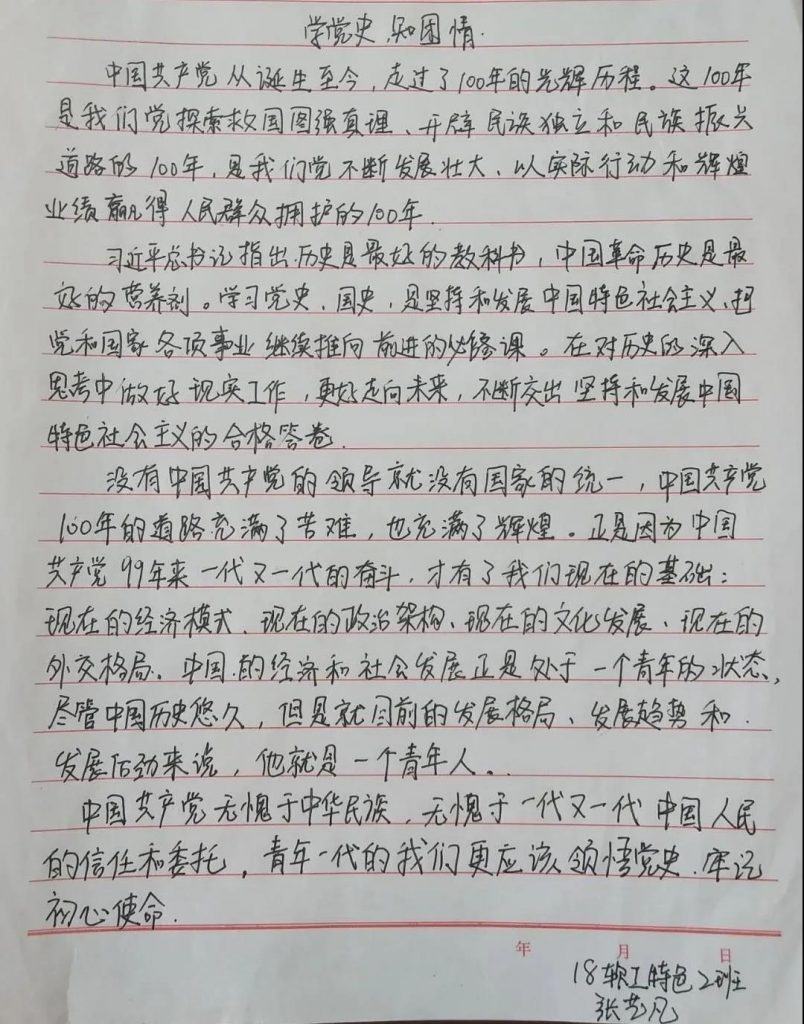 学党史,知国情.
中国共产党从诞生至今,走过了100年的光辉历程。这100年
是我们党探索救国图强真理、开辟民族独立和民族振兴
道路的100年,是我们党不断发展壮大、以实际行动和辉煌
业绩赢得人民群众拥护的100年.
习近平总书记指出.历史是最好的教科书,中国革命历史是最
好的营养剂。学习党史、国史,是坚持和发展中国特色社会主义、把
党和国家各项事业继续推向前进的必修课。在对历史的深入
思考中做好现实工作,更好走向未来,不断交出坚持和发展中国
特色社会主义的合格答卷.
没有中国共产党的领导就没有国家的统一,中国共产党
100年的道路充满了苦难,也充满了辉煌。正是因为中国
共产党99年来一代又一代的奋斗,才有了我们现在的基础:
现在的经济模式、现在的政治架构、现在的文化发展、现在的
外交格局。中国的经济和社会发展正是处于一个青年的状态,
尽管中国历史悠久,但是就目前的发展格局、发展趋势和
发展后劲来说,他就是一个青年人。.
中国共产党无愧于中华民族,无愧于一代又一代中国人民
的信任和委托,青年一代的我们更应该领悟党史.牢记
初心使命.
年 月 日
18软工特色2班
张艺凡